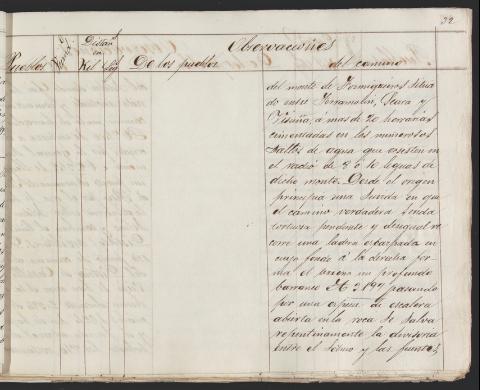 32
Obervaciones
Pueblos
Distans
en
Kil Leg
De los pueblos
del camino
del monte de Formigueiros situa
do entre Ferramolin, Seara y
Visuña, á mas de 20 herrerias
cimentadas en los numerosos
saltos de agua que ecsisten en
el radio de 8 ó 10 leguas de
dicho monte. Desde el origen
principia una senda en que
el camino verdadera senda
tortuosa pendiente y desigual re
corre una ladera escarpada en
cuyo fondo á la derecha for
ma el terreno un profundo
barranco H 2,197 pasando
por una especie de escalera
abierta en la roca se salva
repentinamente la divisoria
entre el Lozano y las fuentes